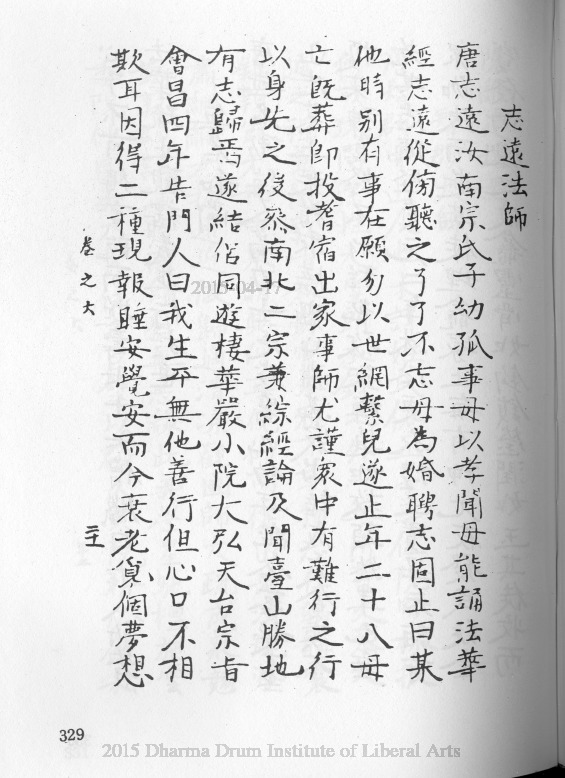 志遠法師
唐志遠汝南宗氏子幼孤事母以孝聞母能誦法華
經志遠從傍聽之了了不忘母為婚聘志固止曰某
他時別有事在願勿以世網繫兒遂止年二十八母
亡既葬卽投耆宿出家事師尤謹眾中有難行之行
以身先之後參南北二宗兼綜經論及聞臺山勝地
有志歸焉遂結侶同遊棲華嚴小院大弘天台宗旨
會昌四年告門人曰我生平無他善行但心口不相
欺耳因得二種現報睡安覺安而今衰老覓個夢想
卷之六
329
2015-04-17
2015 Dharma Drum Institute of Liberal Arts